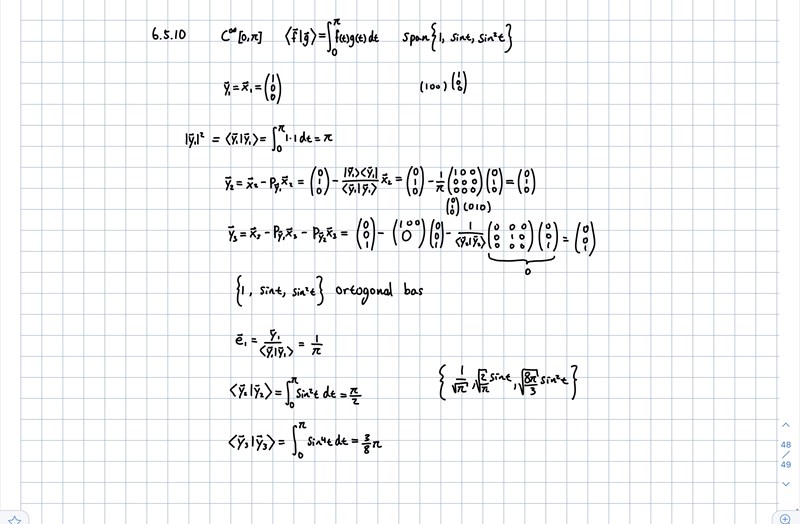 6.5.10 C^∞[0,π] ⟨f̄|ḡ⟩ = ∫₀^π f(t)g(t)dt span{1, sint, sin²t}
ȳ₁ = x̄₁ = (1 0 0) (1 0 0)(1 0 0)
|ȳ₁|² = ⟨ȳ₁|ȳ₁⟩ = ∫₀^π 1·1 dt = π
ȳ₂ = x̄₂ - P_ȳ₁ x̄₂ = (0 1 0) - |ȳ₁⟩⟨ȳ₁| / ⟨ȳ₁|ȳ₁⟩ x̄₂ = (0 1 0) - 1/π (1 0 0 0 0 0 0 0 0)(0 1 0) = (0 1 0)
(0 1 0)(0 1 0)
ȳ₃ = x̄₃ - P_ȳ₁ x̄₃ - P_ȳ₂ x̄₃ = (0 0 1) - (1 0 0 0)(0 0 1) - 1/⟨ȳ₂|ȳ₂⟩ (0 0 0 0 1 0 0 0 0)(0 0 1) = (0 0 1)
0
{1, sint, sin²t} ortogonal bas
ē₁ = ȳ₁ / ⟨ȳ₁|ȳ₁⟩ = 1/π
⟨ȳ₂|ȳ₂⟩ = ∫₀^π sin²t dt = π/2 {1/√π, √(2/π) sint, √(8π/3) sin²t}
⟨ȳ₃|ȳ₃⟩ = ∫₀^π sin⁴t dt = 3/8 π
48
/
49